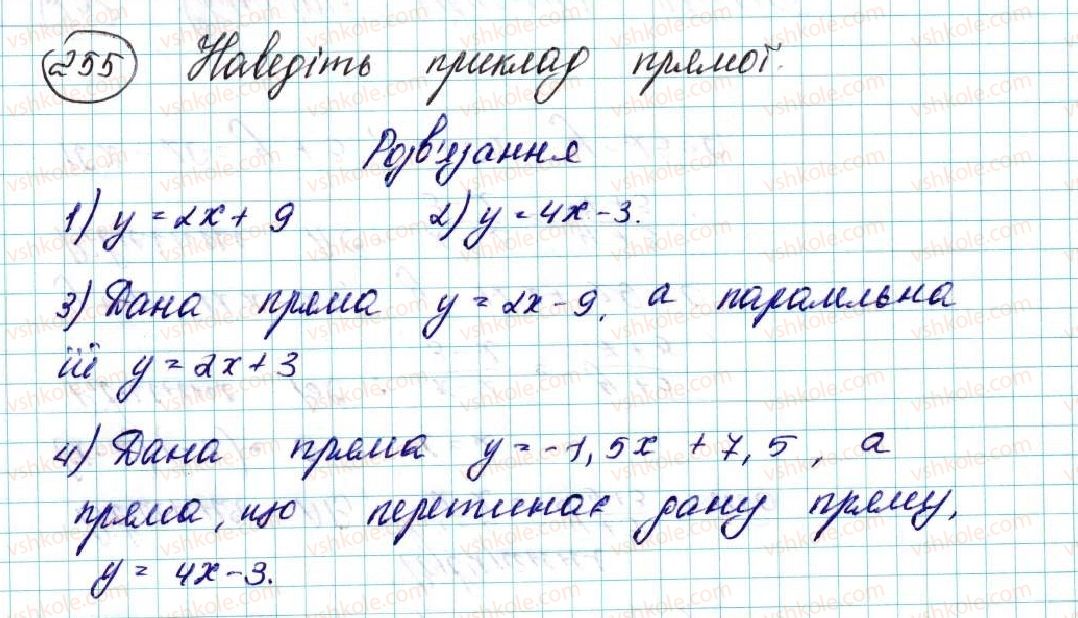 255 Наведіть приклад прямої.
Розв'язання
1) y = 2x + 9 2) y = 4x - 3.
3) Дана пряма y = 2x - 9, а паралельна
їй y = 2x + 3
4) Дана пряма y = -1,5x + 7,5, а
пряма, що перетинає дану пряму,
y = 4x - 3.